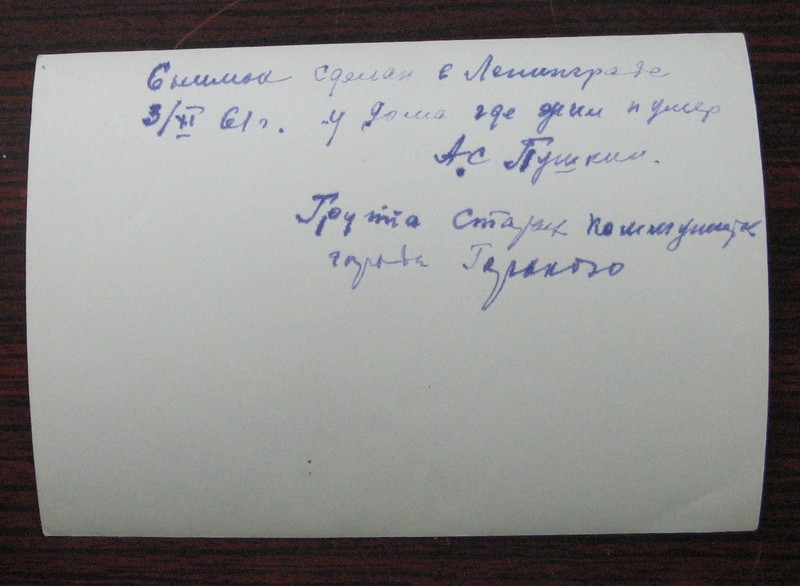 Снимок сделан в Ленинграде
3/XI 61 г. у дома где жил и умер
А.С Пушкин.
Группа старых коммунистов
города Горького